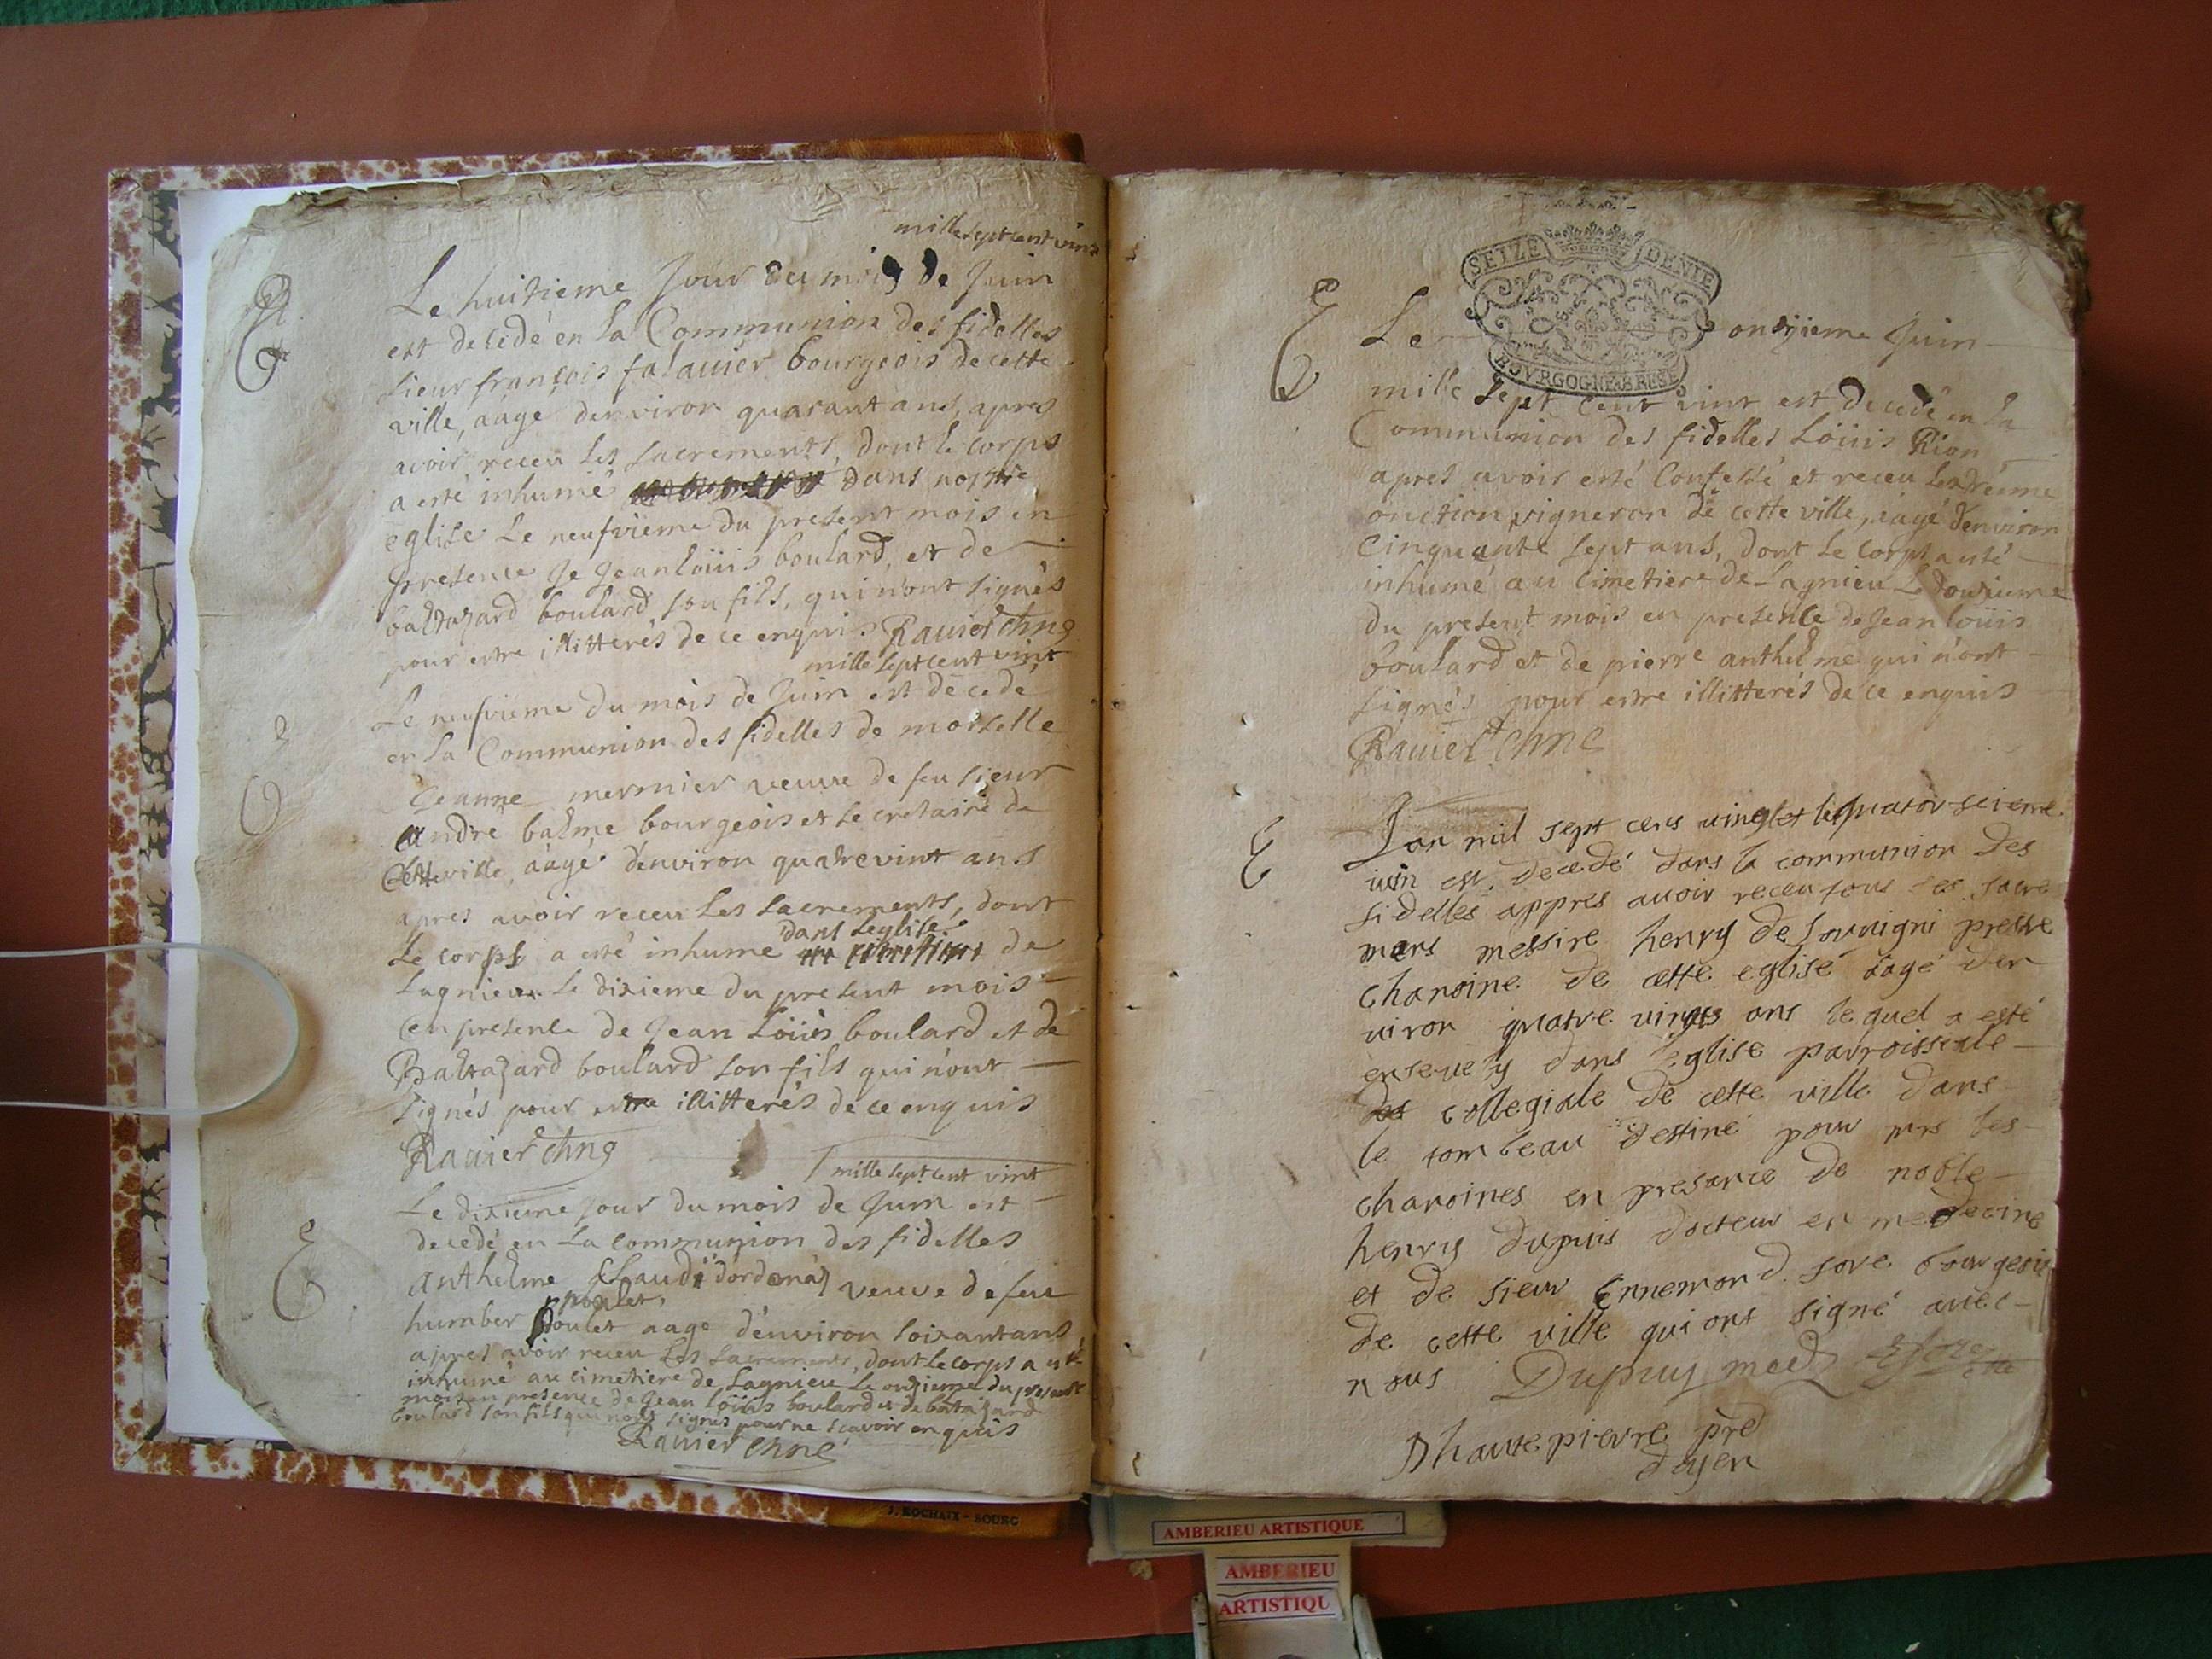 mille sept cent vint
Le huitieme Jour du mois de Juin
est decedé en la Communion des fidelles
sieur françois falauier bourgeois de cette
ville, aagé denviron quarant ans, apres
avoir receu les sacrements, dont le corps
a esté inhumé dans nostre
eglise Le neufvieme du present mois en
presence de Jean loüis boulard, et de
baltazard boulard son fils, qui n'ont signés
pour estre illitterés de ce enquis Rauier chne
mille sept cent vint
Le neufvieme du mois de Juin est decedé
en la Communion des fidelles de mortelle
Jeanne mermier veuve de feu sieur
andré balme bourgeois et secretaire de
Cette ville, aagé d'environ quatrevint ans
apres avoir receu les sacrements, dont
dans leglise
Le corps a esté inhumé de
Lagnieu Le dixieme du present mois
en presence de Jean Loüis boulard et de
Baltazard boulard son fils qui n'ont
signés pour estre illitterés de ce enquis
Rauier chne
mille sept cent vint
Le dixieme jour du mois de Juin est
decedé en La communion des fidelles
anthelme veuve de feu
poulet
humber poulet aage d'environ soixant ans
apres avoir receu les sacrements, dont le corps a esté
inhumé au cimetiere de Lagnieu Le onzieme du present
mois en presence de Jean Loüis boulard et de batazard
boulard son fils qui nont signés pour ne scavoir enquis
Rauier chne
SEIZE DENIE
BOVRGOGNE & BRESE
Le onzieme Juin
mille sept cent vint est decedé en La
Communion des fidelles Loüis Rion
apres avoir esté Confessé et receu Lextréme
onction vigneron de cette ville, aagé d'environ
Cinquante sept ans, dont le corps a esté
inhumé au cimetiere de Lagnieu Le douzieme
du present mois en presence de Jean loüis
boulard et de pierre anthelme qui n'ont
signés pour estre illitterés de ce enquis
Rauier chne
Lan mil sept cens vinglet le quatorseieme
iuin est decedé dans la communion des
fidelles appres auoir receu tous ses sacre
mens messire henry de souuigni prestre
chanoine de cette eglise aagé den
viron quatre vingts ans lequel a esté
ensevely dans l'eglise parroissiale
collegiale de cette ville dans
le tombeau destiné pour mrs les
chanoines en presance de noble
henry dupuis docteur en medecine
et de sieur Ennemond sore bourgeois
de cette ville qui ont signé auec
nous Dupuy med
Dhautepierre pre
doyen
J. ROCHAIX - BOURG
AMBERIEU ARTISTIQUE
AMBERIEU
ARTISTIQU